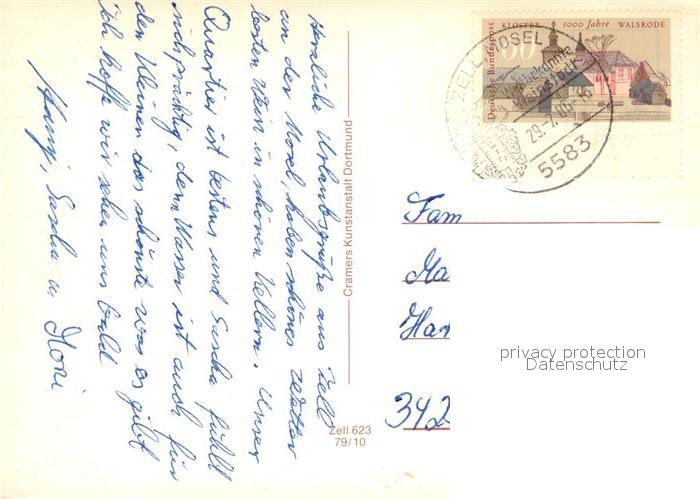 Herzliche Urlaubsgrüße aus Zell
an der Mosel, haben schönes Wetter
besten Wein in schönen Kellern. Unser
Quartier ist bestens und Sascha fühlt
sich prächtig, denn Wasser ist auch für
den Kleinen das schönste was es gibt
ich hoffe wir sehen uns bald
Sascha u.
Cramers Kunstanstalt Dortmund
Zell 623
79/10
Deutsche Bundespost
KLOSTER 1000 Jahre WALSRODE
50
ZELL MOSEL
5583
Fam
Ma
Har
342
privacy protection
Datenschutz